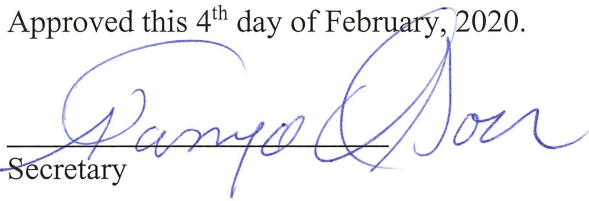 Approved this 4th day of February, 2020.
Secretary